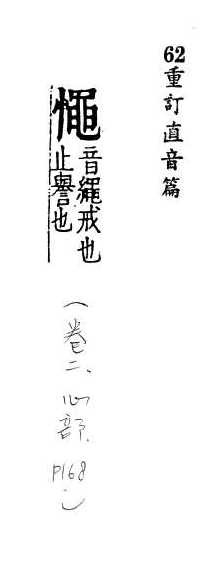 62重訂直音篇
憴音繩戒也
止譽也
(卷二、心部、P168.)